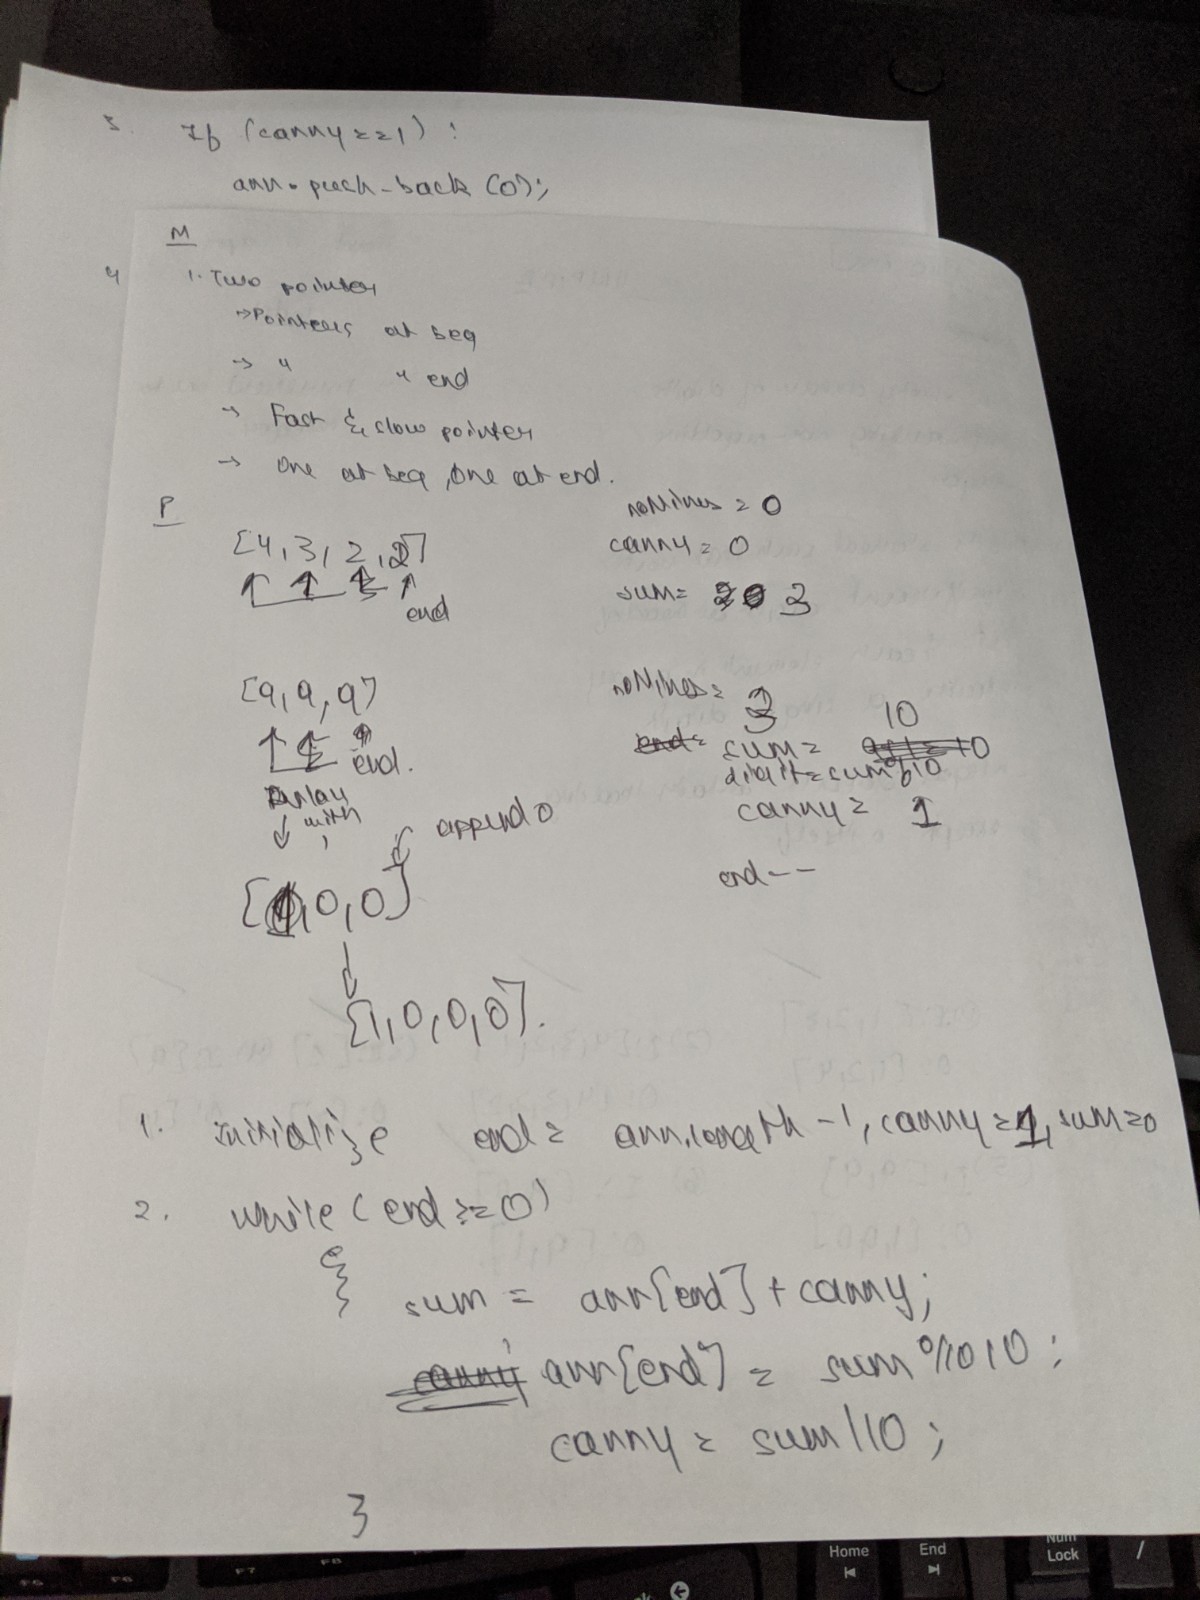 3. If (carry==1) :
arr.push-back (0);
M
4
1. Two pointer
→Pointers at beg
→ " " end
→ Fast & slow pointer
→ One at beg, One at end.
P
[4,3,2,2]
end
noNines = 0
carry = 0
sum= 3
[9,9,9]
end.
with
[1,0,0]
append 0
[1,0,0,0].
noNines = 3
10
sum=
digit=sum%10
carry = 1
end--
1. initialize end = arr.length -1, carry=1, sum=0
2. while (end >=0)
{
sum = arr[end] + carry;
arr[end] = sum%10;
carry = sum/10;
}
Home
End
Num
Lock
/
F5
F6
F7
F8